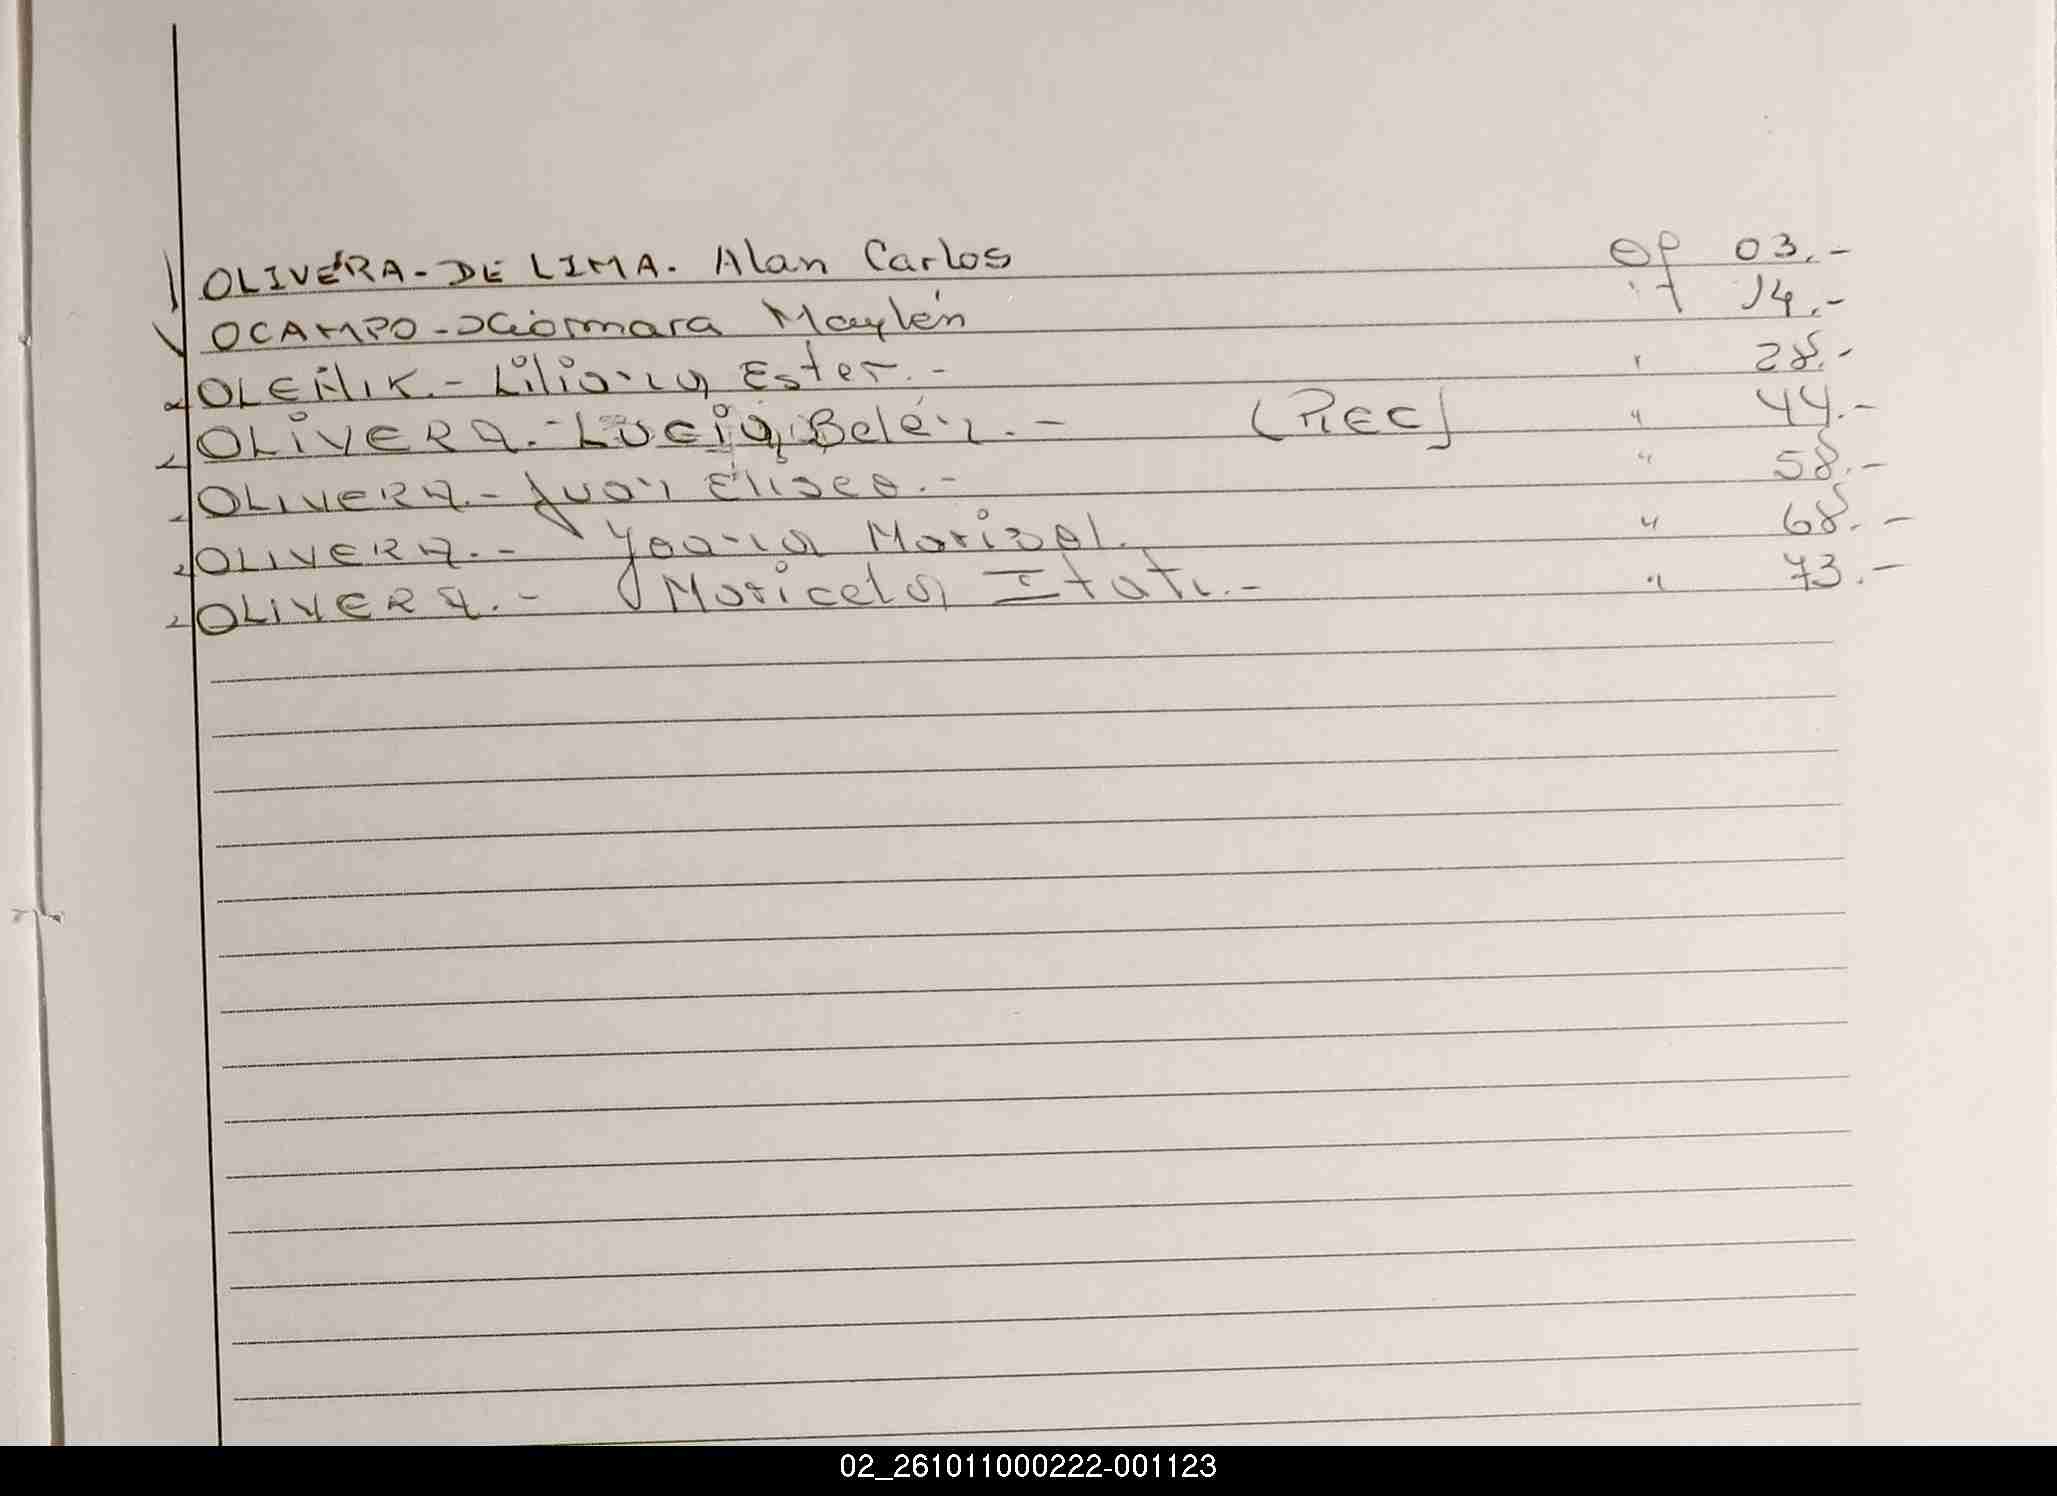 OLIVERA - DE LIMA. Alan Carlos of 03.-
OCAMPO - Xiomara Maylén " 14.-
OLEÑIK.- Liliana Ester.- " 28.-
OLIVERA.- Lucia Belén.- (REC) " 44.-
OLIVERA.- Juan Eliseo.- " 58.-
OLIVERA.- Yoana Marisol. " 68.-
OLIVERA.- Maricela Itati.- " 73.-
02_261011000222-001123